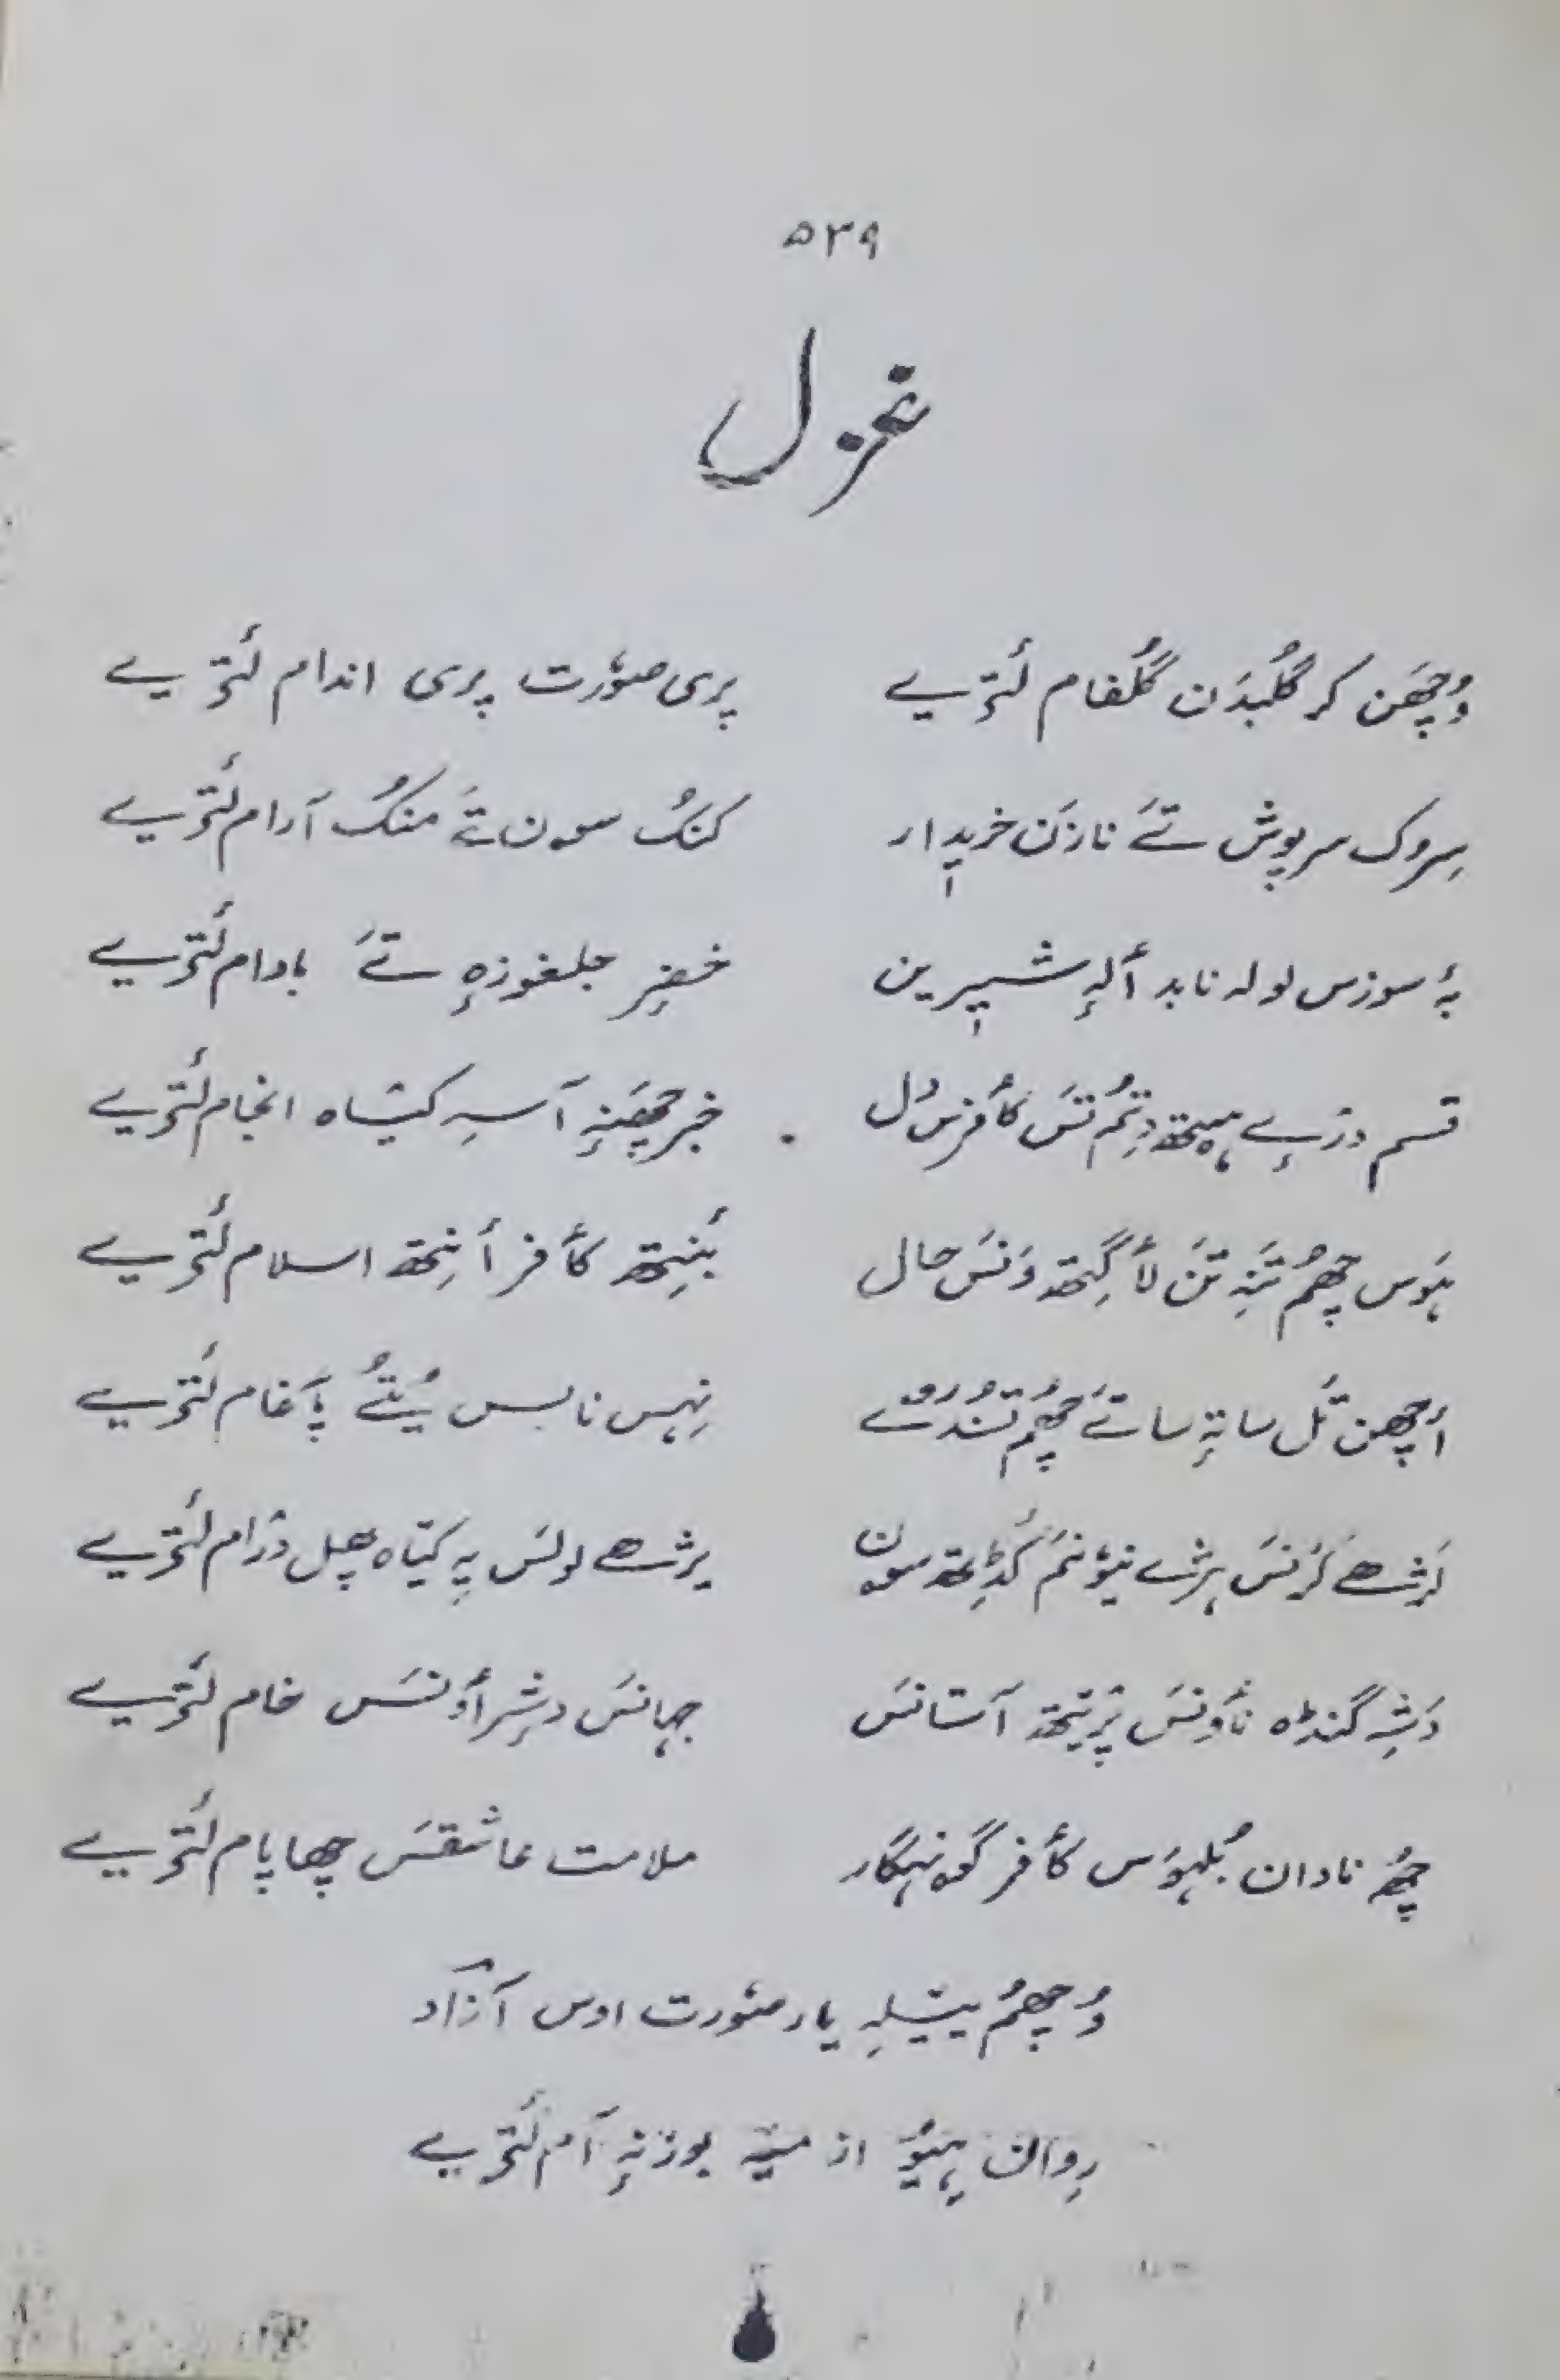 ۵۳۹
غزل
وُچھَن کر گُلبدَن گُلفام لٔتریے پری صوٗرت پری اندام لٔتریے
سِروک سرپوش تَے نازنَن خریٖدار کنَکُ سون تَے منکُ آرام لٔتریے
بۂ سوزس لولہ نابد ألہٕ شیٖرین خضٕر جلغوزہٕ تَے بادام لٔتریے
قسم دزیے ہیتھ دِتمُ تَس کأفرس دُل خبر چھَنہٕ آسہِ کیٛاہ انجام لٔتریے
ہَوس چھُم تَنہِ تَن لأگِتھ وَنَس حال بٔنِتھ کأفر أنِتھ اسلام لٔتریے
أچھن تَل ساتہٕ ساتَے چھُم نِہس نا بس یُتُے پَاَغام لٔتریے
کَرنَس نیوٗنمَ کٔڈِتھ سون کیٛاہ چل درام لٔتریے
گنڈہ نأوِنَس پرٛیتھ آستانَس جہانَس خام لٔتریے
چھُہ نادان بُلہوَس کأفر گونہگار ملامت عاشقَس چھا پام لٔتریے
وُچھم ییٚلہِ یار صوٗرت اوس آزاد
روان پیوٚ از میٚہ بوزنہٕ آم لٔتریے